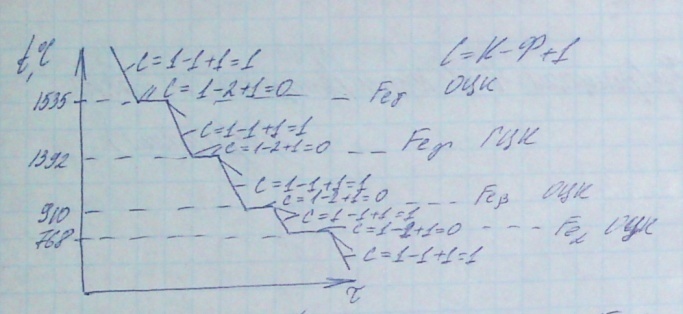 t,°C
C=1-1+1=1
C=К-Ф+1
1535
C=1-2+1=0
Feδ ОЦК
C=1-1+1=1
1392
C=1-2+1=0
Feγ ГЦК
C=1-1+1=1
C=1-2+1=0
910
Feβ ОЦК
C=1-1+1=1
768
C=1-2+1=0
Feα ОЦК
C=1-1+1=1
τ